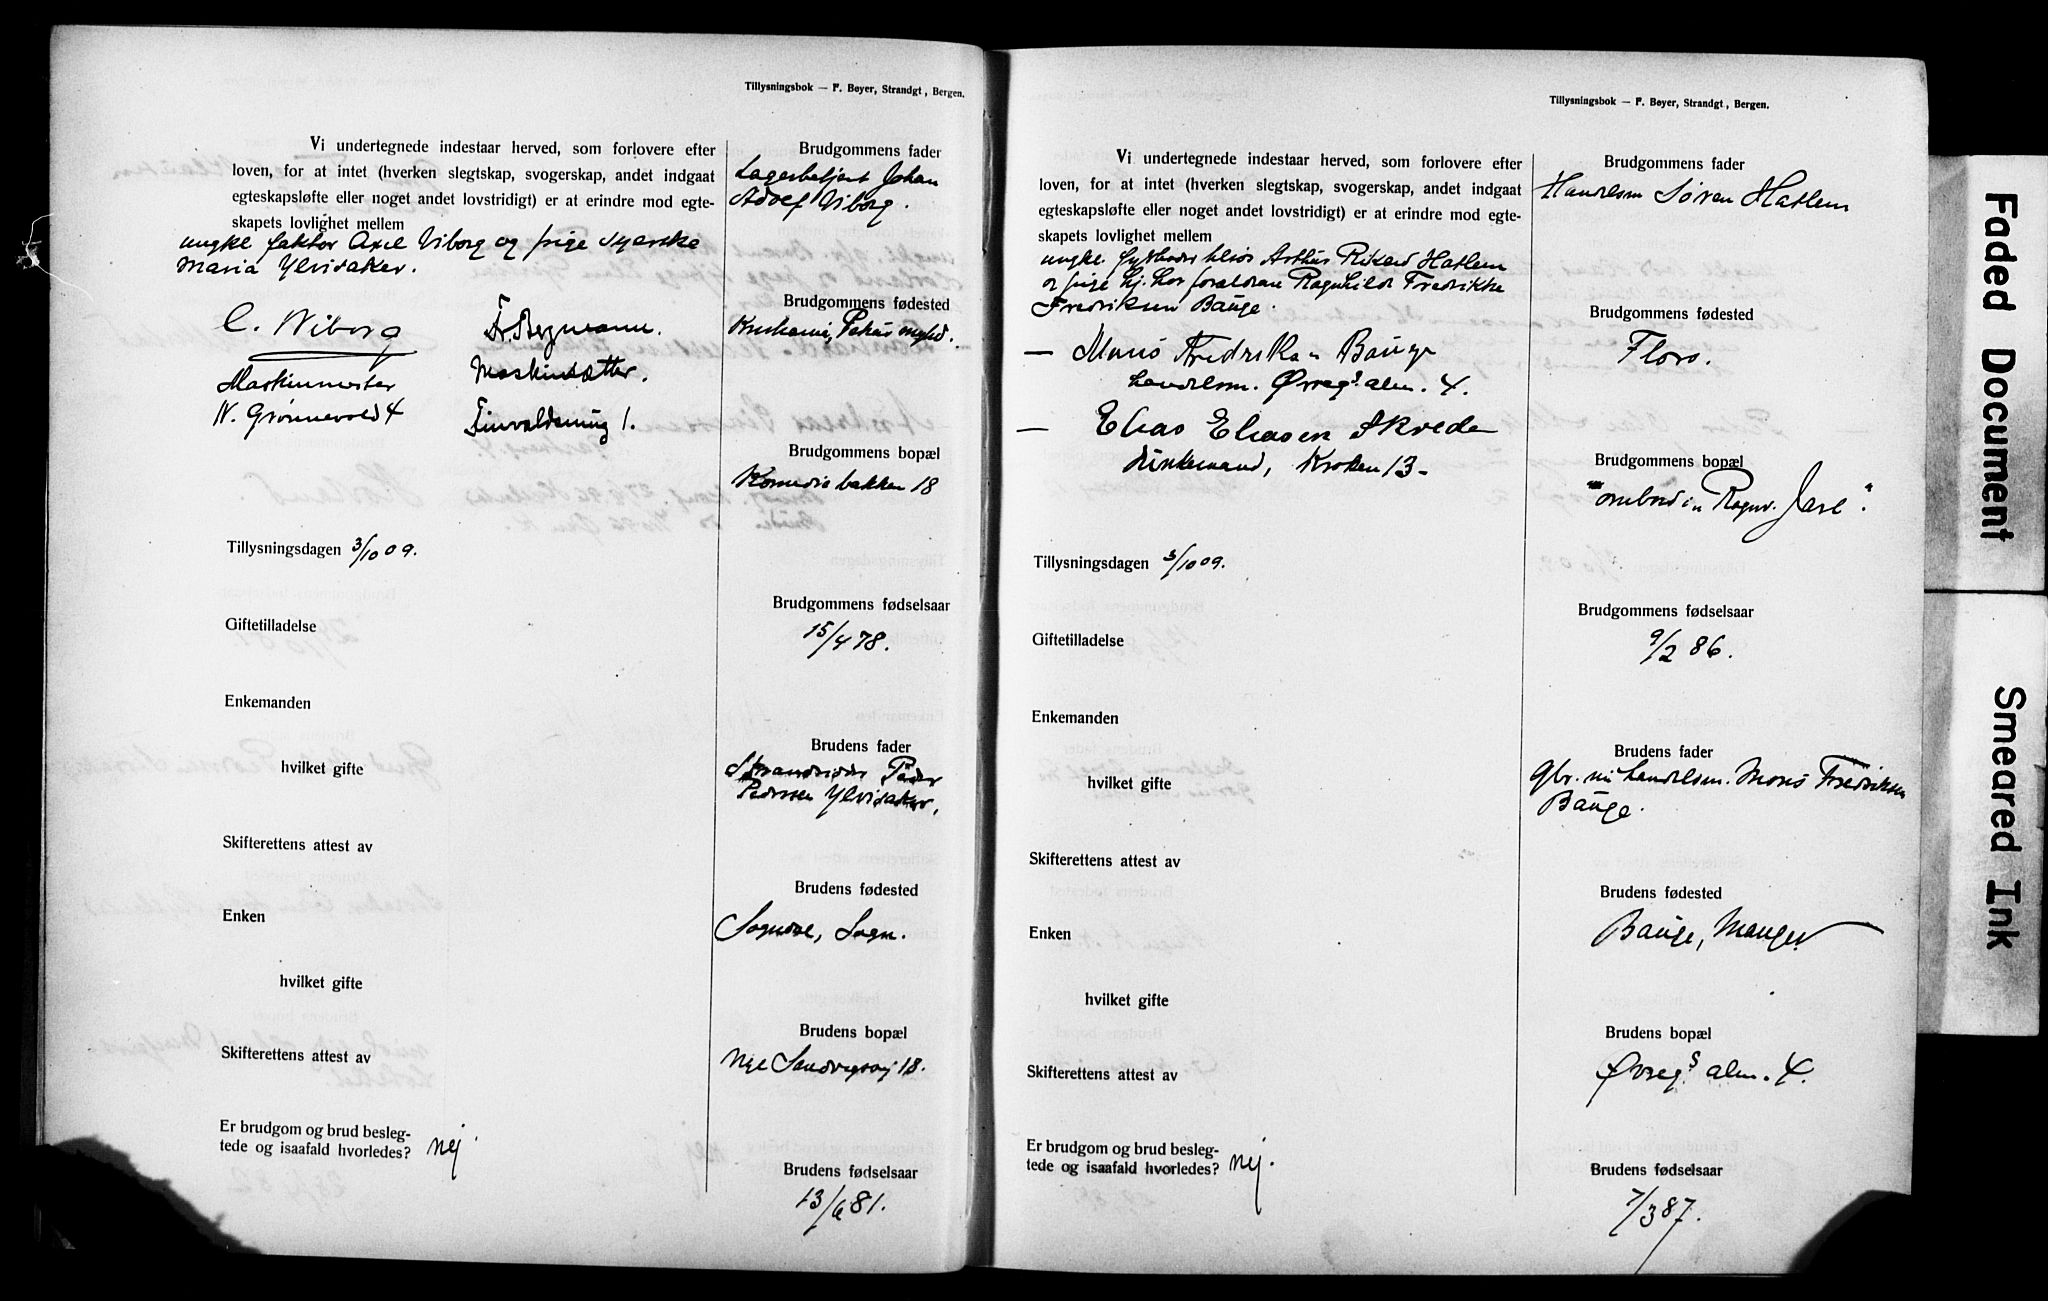 Tillysningsbok — F. Bøyer, Strandgt, Bergen.
Vi undertegnede indestaar herved, som forlovere efter
loven, for at intet (hverken slegtskap, svogerskap, andet indgaat
egteskapsløfte eller noget andet lovstridigt) er at erindre mod egte-
skapets lovlighet mellem
ungk. faktor Axel Viborg og pige syerske
Maria Ylvisaker.
C. Wiborg
Maskinmester
N. Grønnevold 4
Fr. Bergmann.
Maskinsætter.
Tillysningsdagen 3/10 09.
Giftetilladelse
Enkemanden
hvilket gifte
Skifterettens attest av
Enken
hvilket gifte
Skifterettens attest av
Er brudgom og brud besleg-
tede og isaafald hvorledes? nej
Brudgommens fader
Lagerbetjent Johan
Adolf Viborg.
Brudgommens fødested
Kristiania,
Brudgommens bopæl
Komediebakken 18
Brudgommens fødselsaar
15/4 78.
Brudens fader
Strandsidder Peder
Pedersen Ylvisaker,
Brudens fødested
Sogndal, Sogn.
Brudens bopæl
Nye Sandvigsvej 18.
Brudens fødselsaar
13/6 81.
Tillysningsbok — F. Bøyer, Strandgt, Bergen.
Vi undertegnede indestaar herved, som forlovere efter
loven, for at intet (hverken slegtskap, svogerskap, andet indgaat
egteskapsløfte eller noget andet lovstridigt) er at erindre mod egte-
skapets lovlighet mellem
ungk. fyrbøder Arthur Rikard Hatlem
og pige hj. hos forældrene Ragnhild Fredrikke
Fredriksen Bauge.
— Mons Fredriksen Bauge
handelsm. Øvregs. alm. 4.
— Elias Eliasen Skrede
Kroken 13 -
Tillysningsdagen 3/10 09.
Giftetilladelse
Enkemanden
hvilket gifte
Skifterettens attest av
Enken
hvilket gifte
Skifterettens attest av
Er brudgom og brud besleg-
tede og isaafald hvorledes? nej.
Brudgommens fader
Handelsm Søren Hatlem
Brudgommens fødested
Florø.
Brudgommens bopæl
ombord i „Ragnv. Jarl".
Brudgommens fødselsaar
9/2 86.
Brudens fader
Gbr. nu handelsm. Mons Fredriksen
Bauge.
Brudens fødested
Bauge, Manger
Brudens bopæl
Øvregs alm. 4.
Brudens fødselsaar
7/3 87.
Faded Document
Smeared Ink